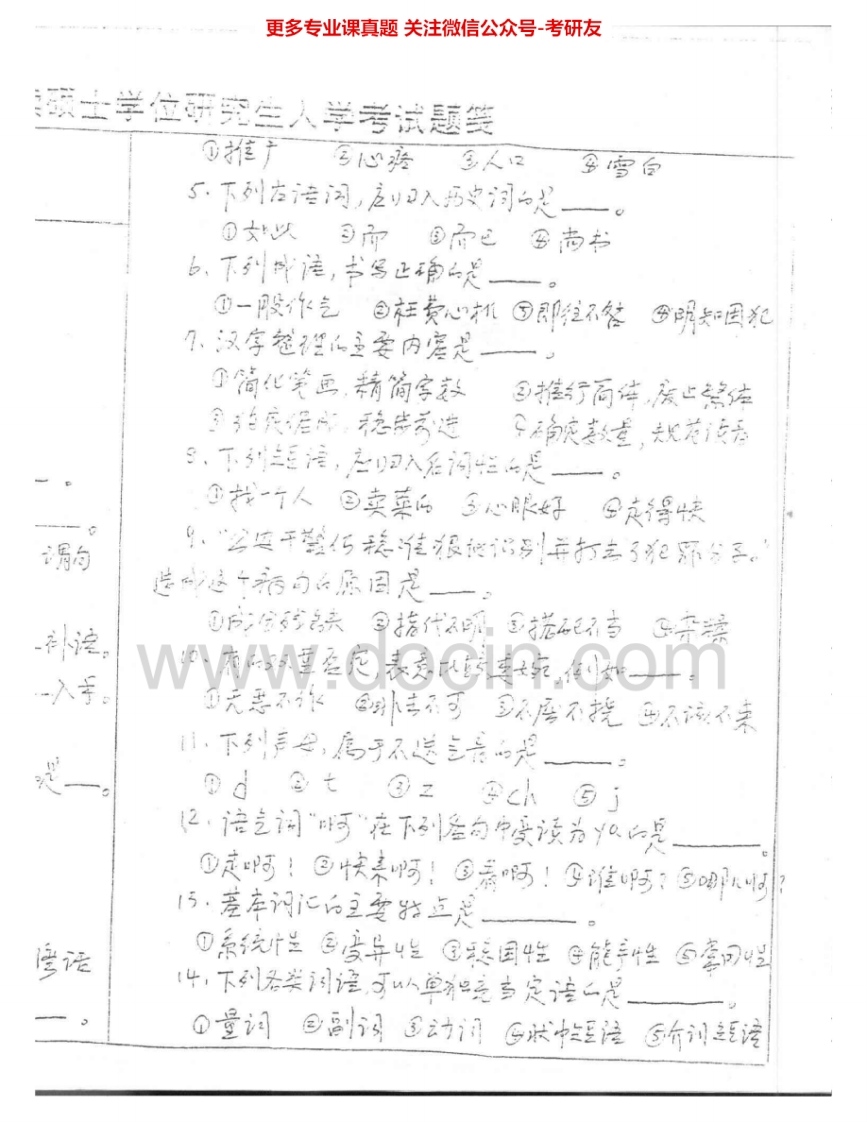 更多专业课真题 关注微信公众号-考研友
硕士学位研究生入学考试题笺
①推广 ②心疼 ③人口 ④雪白
5、下列古语词，应归入历史词的是____。
①如此 ②而 ③而已 ④尚书
6、下列成语，书写正确的是____。
①一股作气 ②枉费心机 ③即往不咎 ④明知固犯
7、汉字整理的主要内容是____。
①简化笔画，精简字数 ②推行简体，废止繁体
③ 稳步前进 ④确定数量，规范读音
8、下列短语，应归入名词性的是____。
①找一个人 ②卖菜的 ③心眼好 ④走得快
—。
____。
9、“公安干警们稳准狠地识别并打击了犯罪分子。”
谓句
造成这个病句的原因是____。
①成分残缺 ②指代不明 ③搭配不当 ④杂糅
-补语。
www.docin.com
10、有的双重否定，表意比较委婉。例如____。
-入手。
①无恶不作 ②非去不可 ③不屈不挠 ④不该不来
11、下列声母，属于不送气音的是____。
是__。
①d ②t ③z ④ch ⑤j
12、语气词“啊”在下列各句中变读为ya的是____。
①走啊！ ②快来啊！ ③看啊！ ④谁啊？ ⑤哪儿啊？
13、基本词汇的主要特点是____。
①系统性 ②变异性 ③稳固性 ④能产性 ⑤常用性
语
14、下列各类词语，可以单独充当定语的是____。
__。
①量词 ②副词 ③动词 ④状中短语 ⑤介词短语